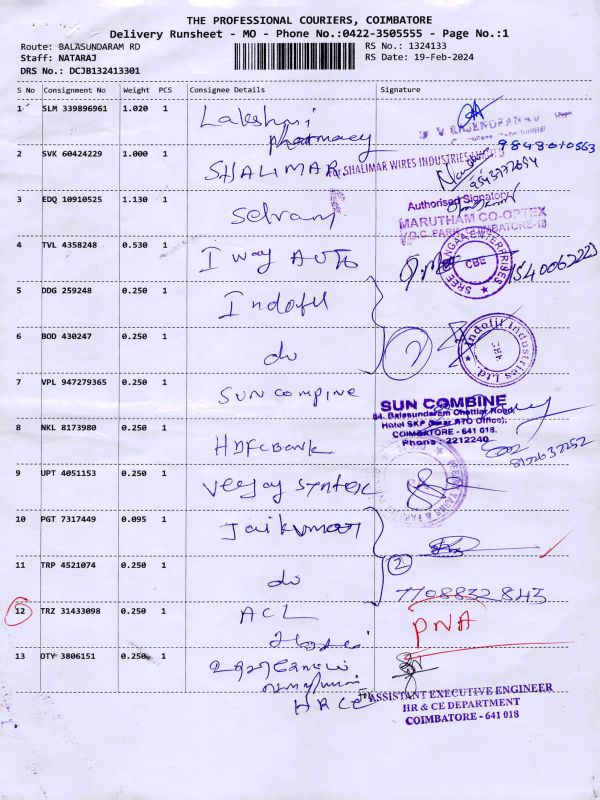 THE PROFESSIONAL COURIERS, COIMBATORE
Delivery Runsheet - MO - Phone No.:0422-3505555 - Page No.:1
Route: BALASUNDARAM RD
Staff: NATARAJ
DRS No.: DCJB132413301
RS No.: 1324133
RS Date: 19-Feb-2024
S No Consignment No Weight PCS Consignee Details Signature
1 SLM 339896961 1.020 1 Lakshmi
pharmacy
9843010563
2 SVK 60424229 1.000 1 SHALIMAR For SHALIMAR WIRES INDUSTRIES
Authorised Signatory
3 EDQ 10910525 1.130 1 Selvaraj
MARUTHAM CO-OPTEX
4 TVL 4358248 0.530 1 I way AUTO
SREE ENTERPRISES
CBE
5 DDG 259248 0.250 1 Indofil
Indofil Industries Ltd.
CBE
6 BOD 430247 0.250 1 do 2
7 VPL 947279365 0.250 1 SUN COMPINE
SUN COMBINE
84, Balasundaram Chettiar Road,
Hotel SKP (Near RTO Office),
COIMBATORE - 641 018.
Phone : 2212240
8 NKL 8173980 0.250 1 HDFC Bank
8122632252
9 UPT 4051153 0.250 1 Veejay SYNTEX
10 PGT 7317449 0.095 1 Jaikumar
2
11 TRP 4521074 0.250 1 do
7708832843
12 TRZ 31433098 0.250 1 ACL
PNA
13 OTY 3806151 0.250 1
HRCE
For ASSISTANT EXECUTIVE ENGINEER
HR & CE DEPARTMENT
COIMBATORE - 641 018